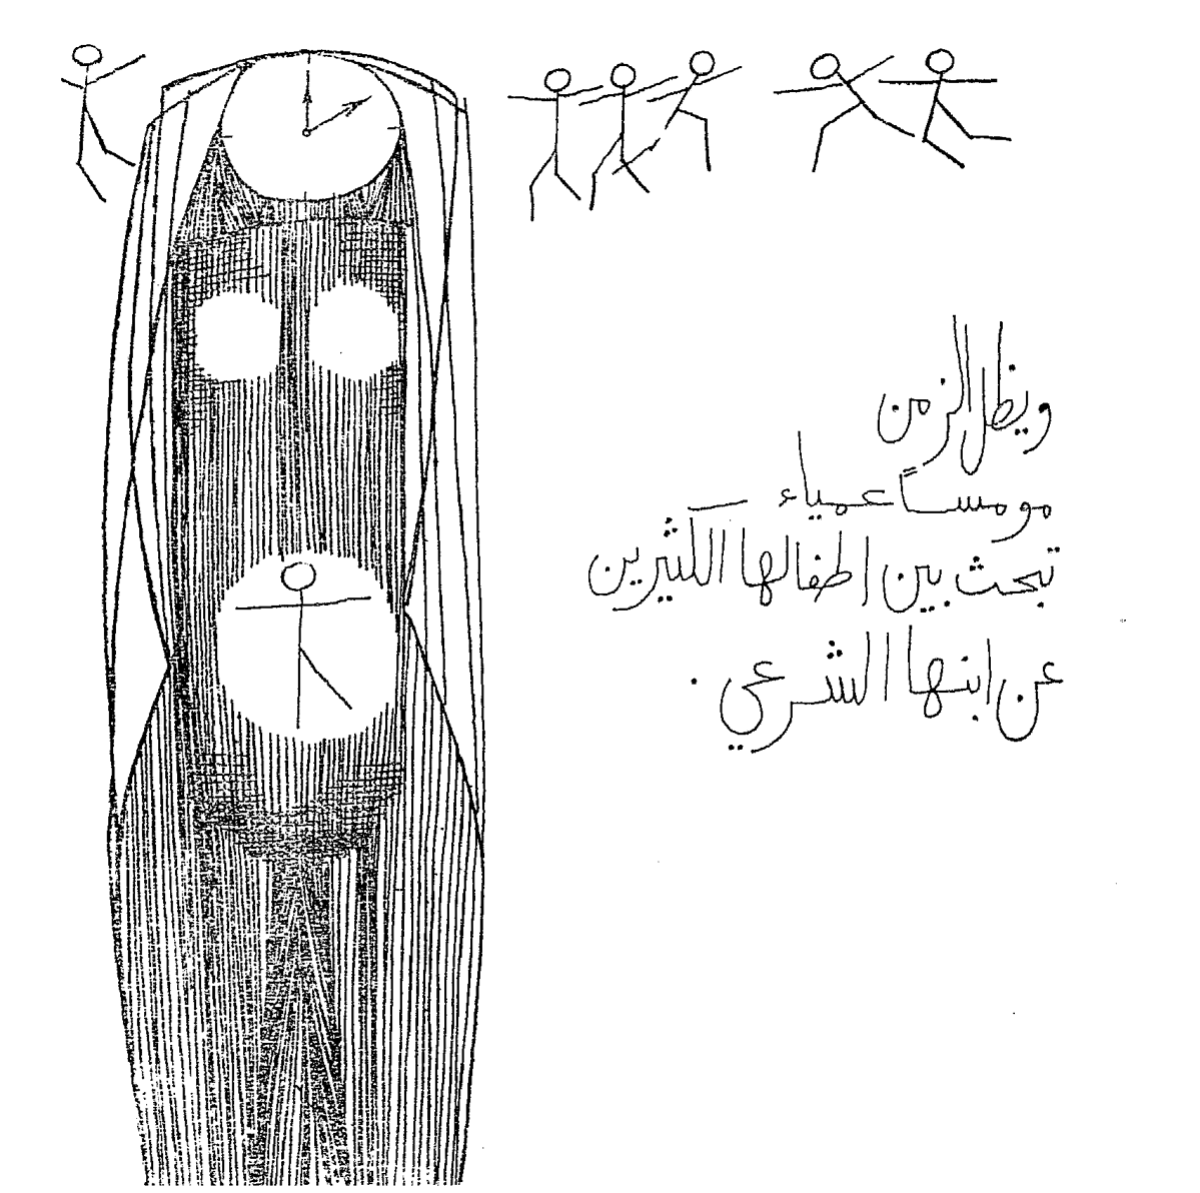 ويظل الزمن
مومساً عمياء
تبحث بين اطفالها الكثيرين
عن ابنها الشرعي .